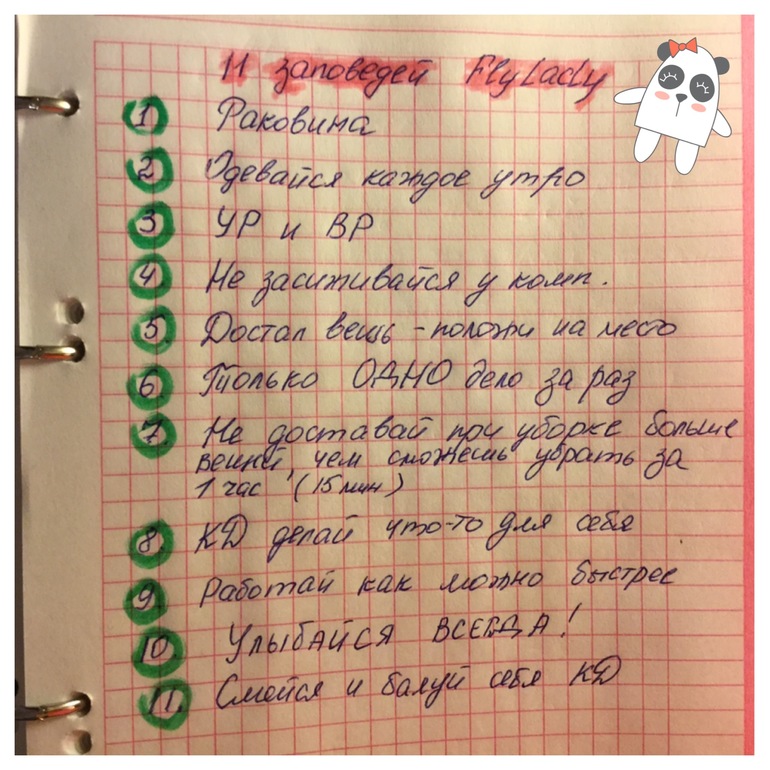 11 заповедей FlyLady
1 Раковина
2 Одевайся каждое утро
3 УР и ВР
4 Не засиживайся у комп.
5 Достал вещь - положи на место
6 Только ОДНО дело за раз
7 Не доставай при уборке больше
вещей, чем сможешь убрать за
1 час (15 мин)
8 КД делай что-то для себя
9 Работай как можно быстрее
10 Улыбайся ВСЕГДА!
11 Смейся и балуй себя КД